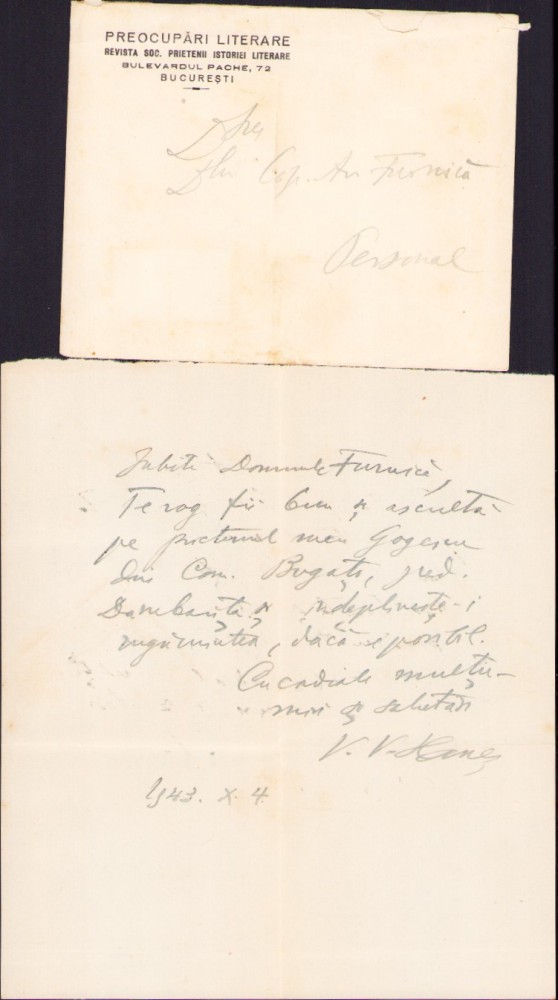 PREOCUPĂRI LITERARE
REVISTA SOC. PRIETENII ISTORIEI LITERARE
BULEVARDUL PACHE, 72
BUCUREȘTI
Dlui Cap. Av. Furnică
Personal
Iubite Domnule Furnică,
Te rog fii bun și ascultă
pe prietenul meu Gogescu
din Com. Bugați, jud.
Dâmbovița și îndeplinește-i
rugămintea, dacă e posibil.
Cu cordiale mulțu-
miri și salutări
V. V. Haneș
1943. X. 4.